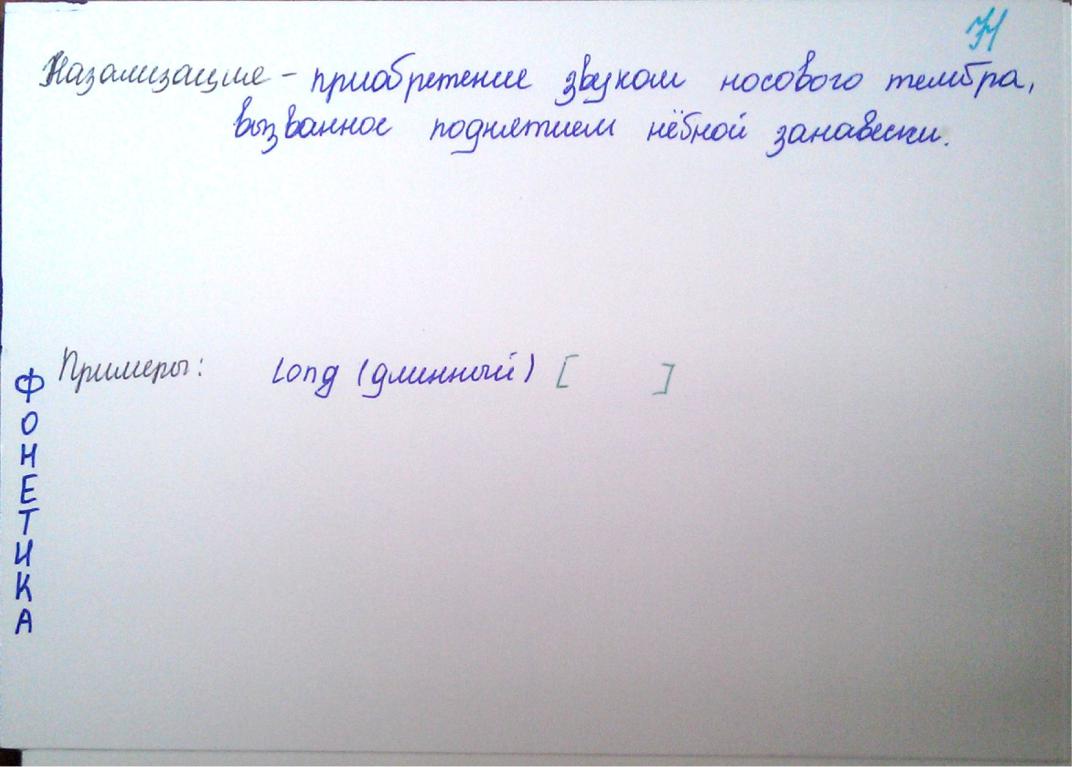 71
Назализация – приобретение звуком носового тембра,
вызванное поднятием нёбной занавески.
Примеры: Long (длинный) [ ]
ФОНЕТИКА